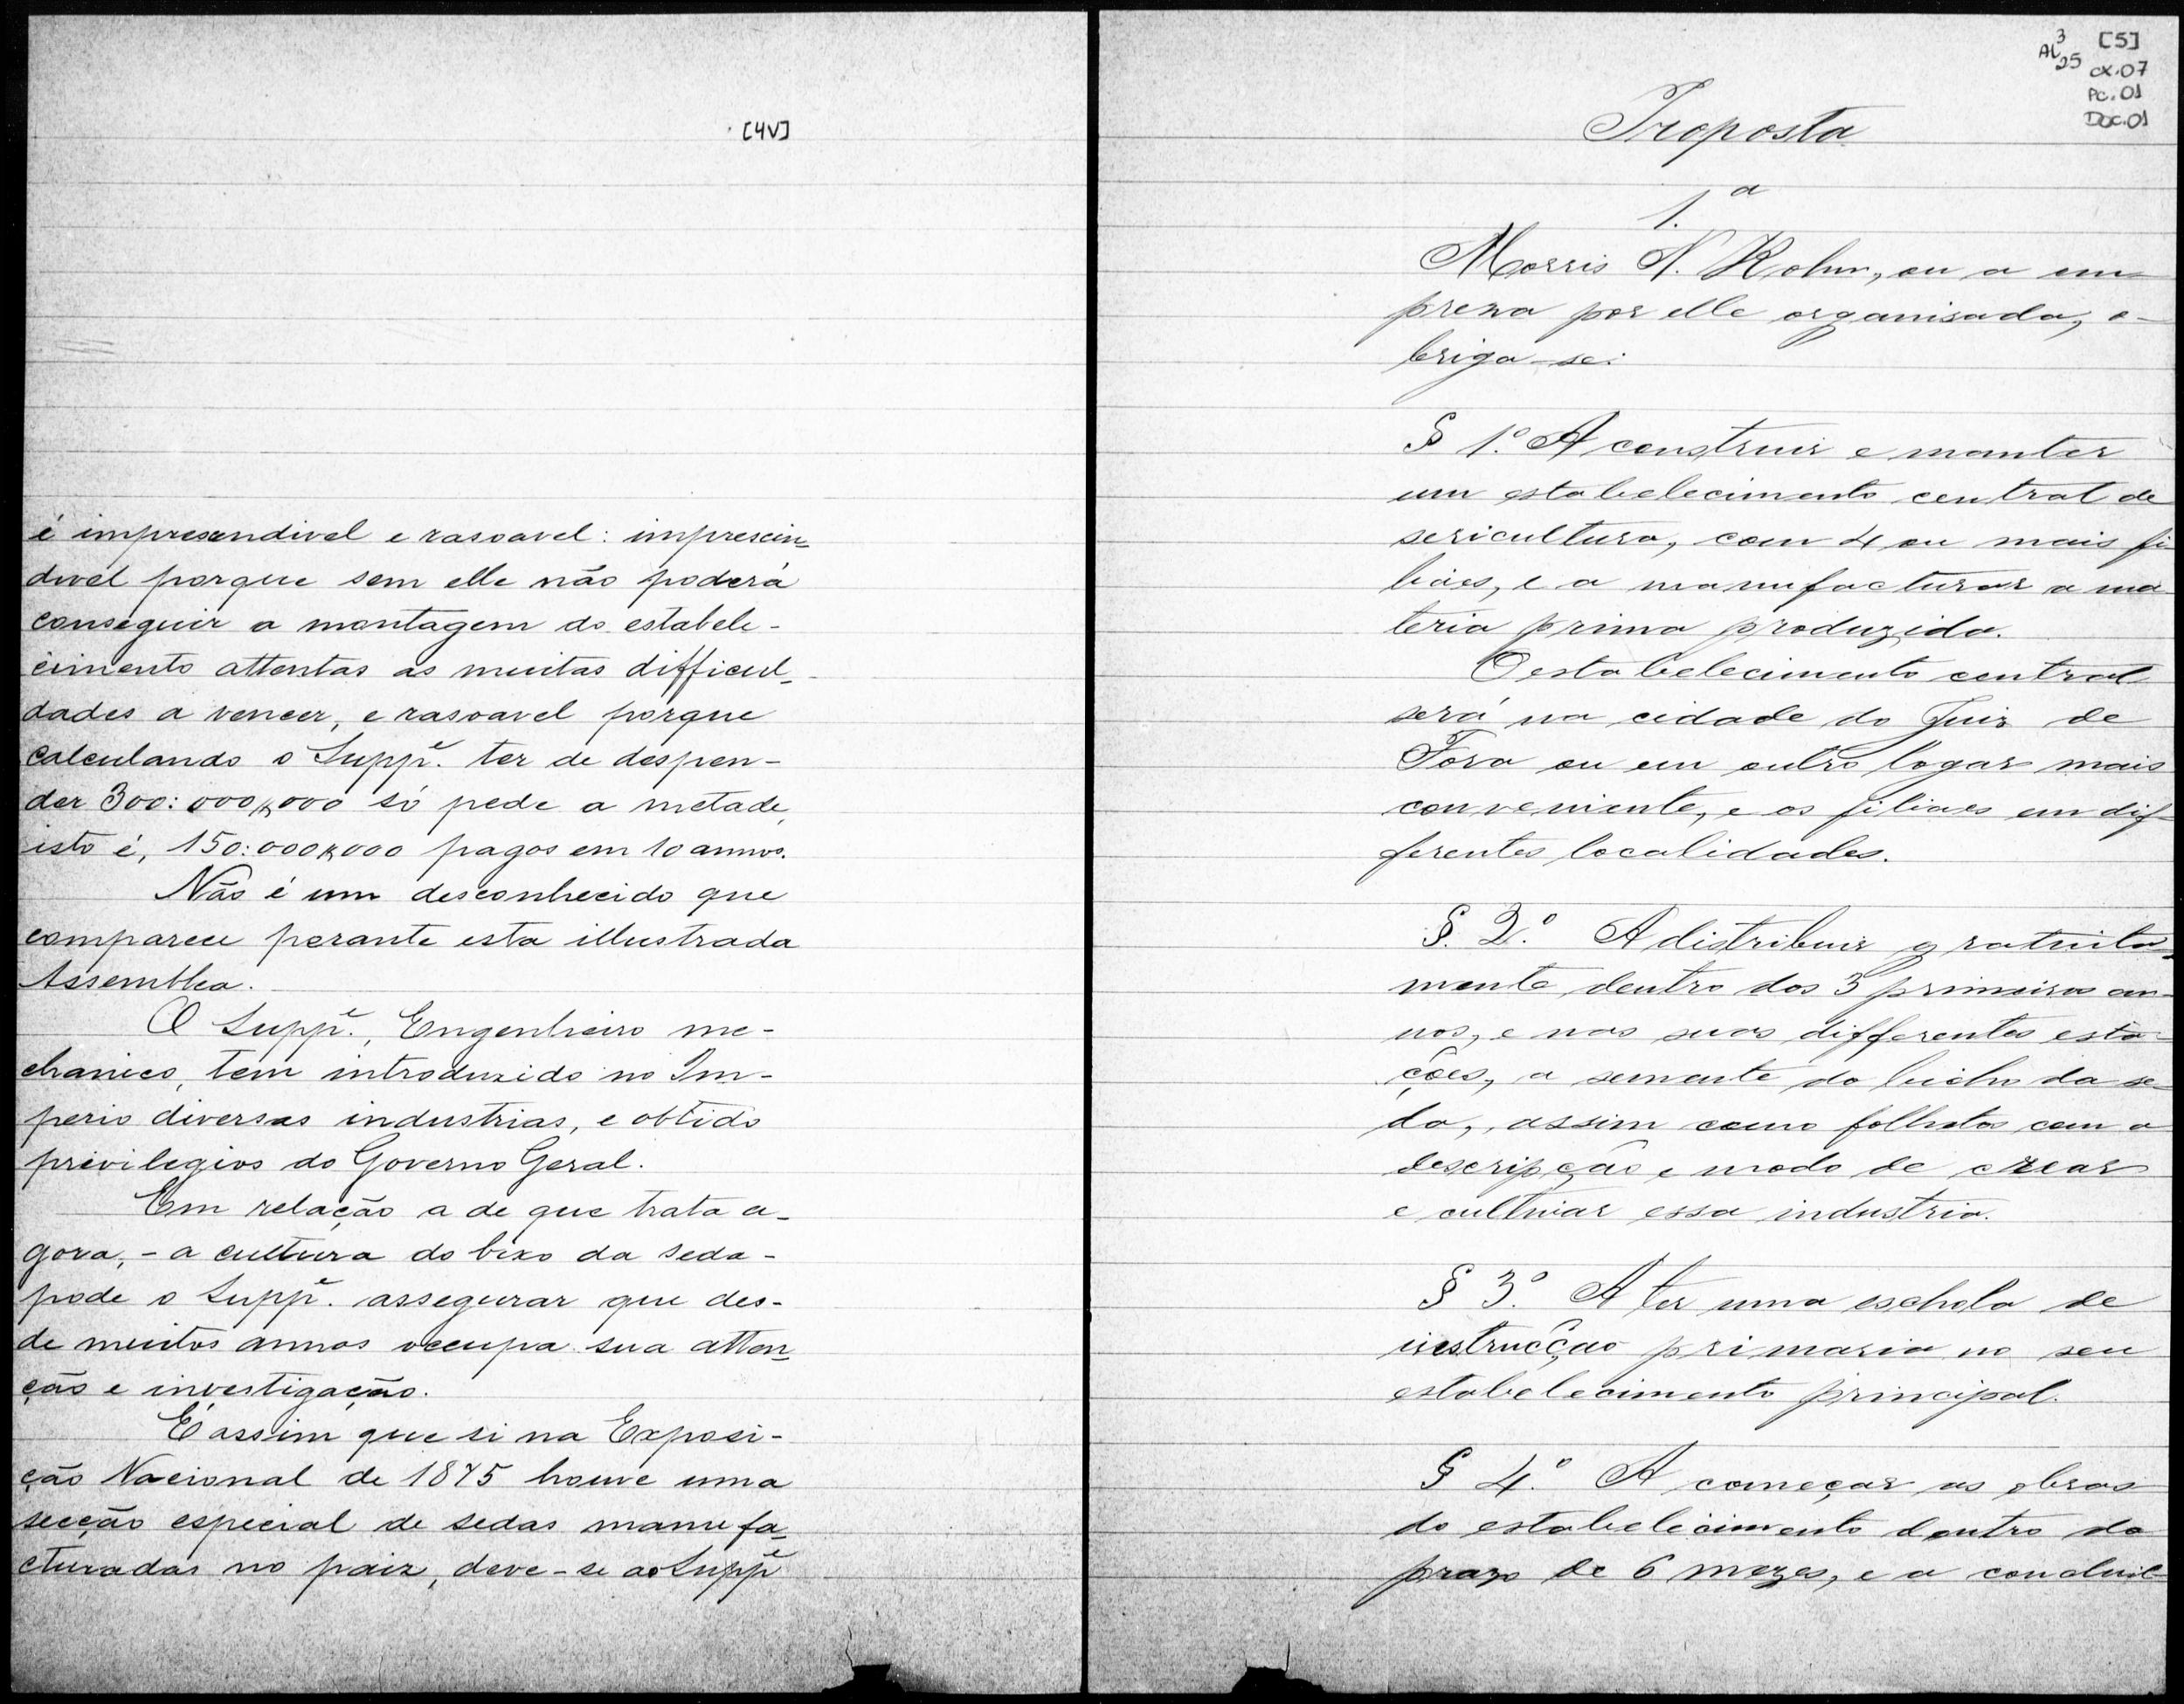 [4V]
é impresendivel e rasoavel: imprescin-
divel porque sem elle não poderá
conseguir a montagem do estabele-
cimento attentas as muitas difficul-
dades a vencer, e rasoavel porque
calculando o Supp.e ter de despen-
der 300:000$000 só pede a metade,
isto é, 150:000$000 pagos em 10 annos.
Não é um desconhecido que
comparece perante esta illustrada
Assemblea.
O Supp.e, Engenheiro me-
chanico, tem introduzido no Im-
perio diversas industrias, e obtido
privilegios do Governo Geral.
Em relação a de que trata a-
gora, - a cultura do bixo da seda -
pode o Supp.e assegurar que des-
de muitos annos occupa sua atten-
ção e investigação.
É assim que si na Exposi-
ção Nacional de 1875 houve uma
secção especial de sedas manufa-
cturadas no paiz, deve-se ao Supp.e
AL 3 25
[5]
CX.07
PC.01
DOC.01
Proposta
1.ª
Morris N. Kohn, ou a em-
preza por elle organisada, o-
briga-se:
§ 1.º A construir e manter
um estabelecimento central de
sericultura, com 4 ou mais fi-
liaes, e a manufacturar a ma-
teria prima produzida.
O estabelecimento central
será na cidade do Juiz de
Fora ou em outro logar mais
conveniente, e os filiaes em dif-
ferentes localidades.
§. 2.º A distribuir gratuita-
mente dentro dos 3 primeiros an-
nos, e nas suas differentes esta-
ções, a semente do bicho da se-
da, assim como folhetos com a
descripção e modo de crear
e cultivar essa industria.
§ 3.º A ter uma eschola de
instrucção primaria no seu
estabelecimento principal.
§ 4.º A começar as obras
do estabelecimento dentro do
prazo de 6 mezes, e a concluil-